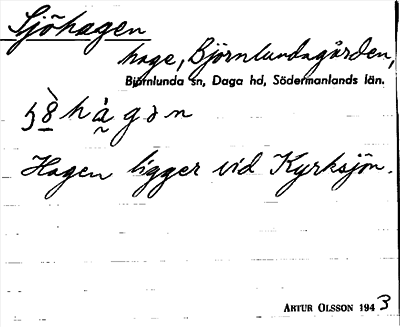 Sjöhagen
hage, Björnlundagården,
Björnlunda sn, Daga hd, Södermanlands län.
Hagen ligger vid Kyrksjön.
ARTUR OLSSON 1943